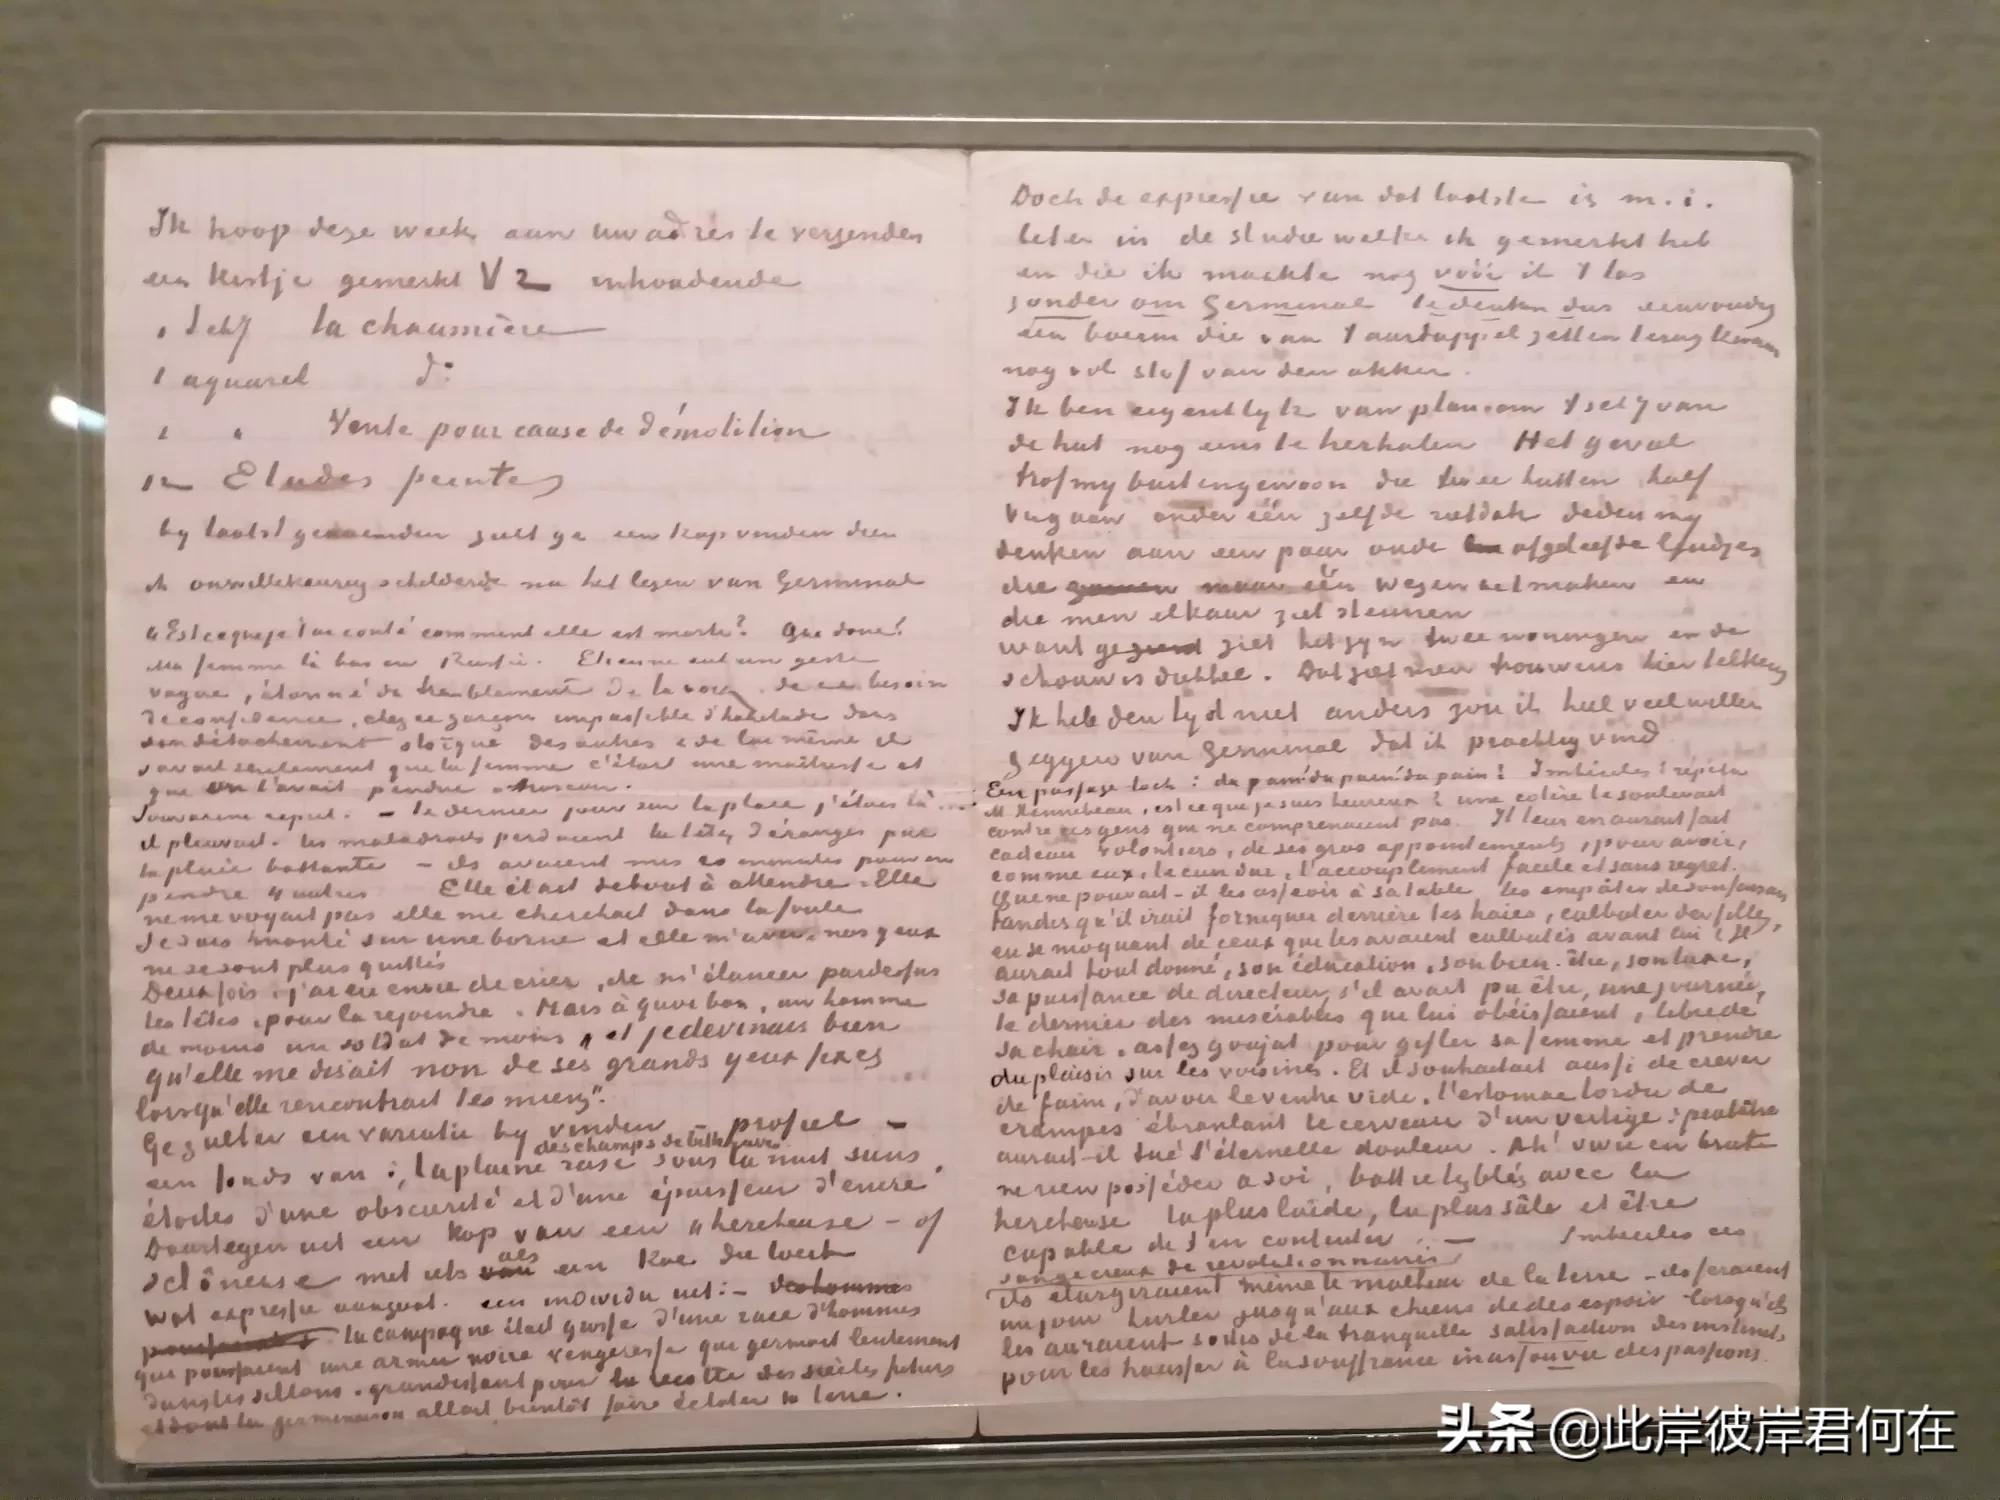 Ik hoop deze week aan uw adres te verzenden
een kistje gemerkt V2 inhoudende
1 schij la chaumière
1 aquarel d°
1 " Vente pour cause de démolition
12 Etudes peintes
by laatstgenoemden zult ge een kop vinden dien
ik onwillekeurig schilderde na het lezen van Germinal
"Est ce que je t'ai conté comment elle est morte? Qui donc?
Ma femme là bas en Russie. Etienne eut un geste
vague, étonné du tremblement de la voix, de ce besoin
de confidence, chez ce garçon impassible d'habitude dans
son détachement stoïque des autres & de lui même il
savait seulement que la femme c'était une maîtresse et
qu'on l'avait pendue à Moscou.
Souvarine reprit. — le dernier jour sur la place j'étais là....
il pleuvait. les maladroits perdaient la tête, dérangés par
la pluie battante — ils avaient mis 20 minutes pour en
pendre 4 autres Elle était debout à attendre. Elle
ne me voyait pas elle me cherchait dans la foule
Je suis monté sur une borne et elle m'a vu, nos yeux
ne se sont plus quittés
Deux fois j'ai eu envie de crier, de m'élancer pardessus
les têtes, pour la rejoindre. Mais à quoi bon, un homme
de moins un soldat de moins, et je devinais bien
qu'elle me disait non de ses grands yeux fixes
lorsqu'elle rencontrait les miens".
Ge zult er een variatie by vinden — profiel —
des champs de betteraves
een fonds van: la plaine rase sous la nuit sans
étoiles d'une obscurité et d'une épaisseur d'encre
Daartegen uit een kop van een "hercheuse — of
sclôneuse met iets van als een koe die loeit
wat expressie aangaat. een individu uit: — des hommes
poussaient la campagne était grosse d'une race d'hommes
que poussaient une armée noire vengeresse que germait lentement
dans les sillons. grandissant pour la récolte des siècles futurs
et dont la germinaison allait bientôt faire éclater la terre.
Doch de expressie van dat laatste is m.i.
beter in de studie welke ik gemerkt heb
en die ik maakte nog vóór ik 't las
zonder om Germinal te denken dus eenvoudig
een boerin die van 't aardappelzetten terug kwam
nog vol stof van den akker.
Ik ben eigentlyk van plan om 't schij van
de hut nog eens te herhalen Het geval
trof my buitengewoon die twee hutten half
vergaan onder één zelfde rietdak deden my
denken aan een paar oude afgeleefde luidjes
die maar één wezen uitmaken en
die men elkaar ziet steunen
want ziet het zyn twee woningen en de
schouw is dubbel. Dat ziet men trouwens hier telkens
Ik heb den tyd niet anders zou ik heel veel willen
zeggen van Germinal dat ik prachtig vind
Een passage toch: du pain! du pain! du pain! Imbéciles! répéta
M. Hennebeau, est ce que je suis heureux? une colère le soulevait
contre ces gens qui ne comprenaient pas. Il leur en aurait fait
cadeau volontiers, de ses gros appointements, pour avoir,
comme eux, le cuir dur, l'accouplement facile et sans regret.
Que ne pouvait-il les asseoir à sa table les empâter de son faisan
tandis qu'il irait forniquer derrière les haies, culbuter des filles,
en se moquant de ceux que les avaient culbutés avant lui! Il
aurait tout donné, son éducation, son bien-être, son luxe,
sa puissance de directeur, s'il avait pu être, une journée,
le dernier des misérables que lui obéissaient, libre de
sa chair, assez goujat pour gifler sa femme et prendre
du plaisir sur les voisines. Et il souhaitait aussi de crever
de faim, d'avoir le ventre vide, l'estomac tordu de
crampes ébranlant le cerveau d'un vertige: peutêtre
aurait-il tué l'éternelle douleur. Ah! vivre en brute
ne rien posséder à soi, battre les blés avec la
hercheuse la plus laide, la plus sâle et être
capable de s'en contenter. — Imbéciles ces
songe creux de révolutionnaires
ils élargiraient même le malheur de la terre — ils feraient
un jour hurler jusqu'aux chiens de désespoir lorsqu'ils
les auraient sortis de la tranquille satisfaction des instincts,
pour les hausser à la souffrance inassouvie des passions.
头条 @此岸彼岸君何在